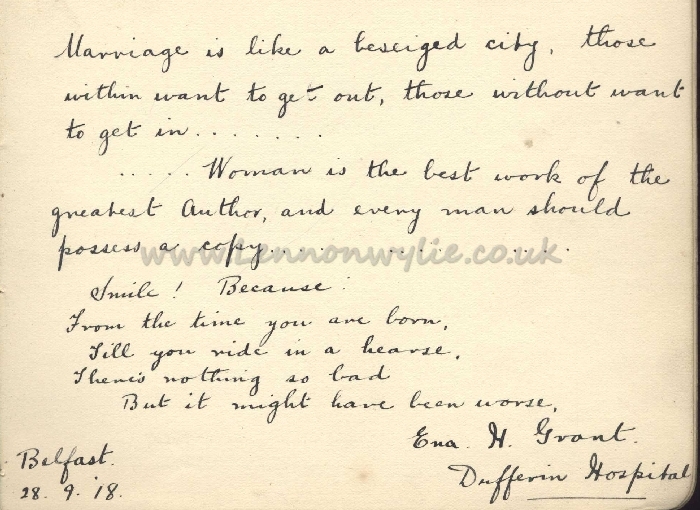 Marriage is like a beseiged city, those
within want to get out, those without want
to get in.......
..... Woman is the best work of the
greatest Author, and every man should
possess a copy.... ... ....
www.Lennonwylie.co.uk
Smile! Because!
From the time you are born,
Till you ride in a hearse,
There's nothing so bad
But it might have been worse.
Ena. H. Grant.
Belfast.
Dufferin Hospital
28. 9. '18.